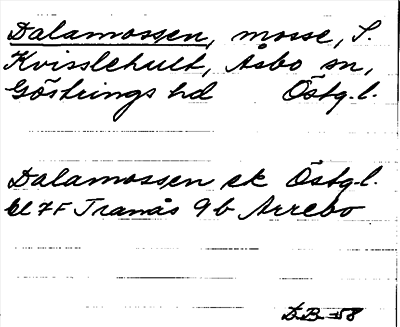 Dalamossen, mosse, S.
Kvisslehult, Åsbo sn,
Göstrings hd Östg.l.
Dalamossen ek Östg.l.
bl 7F Tranås 9b Arrebo
D.B. 58